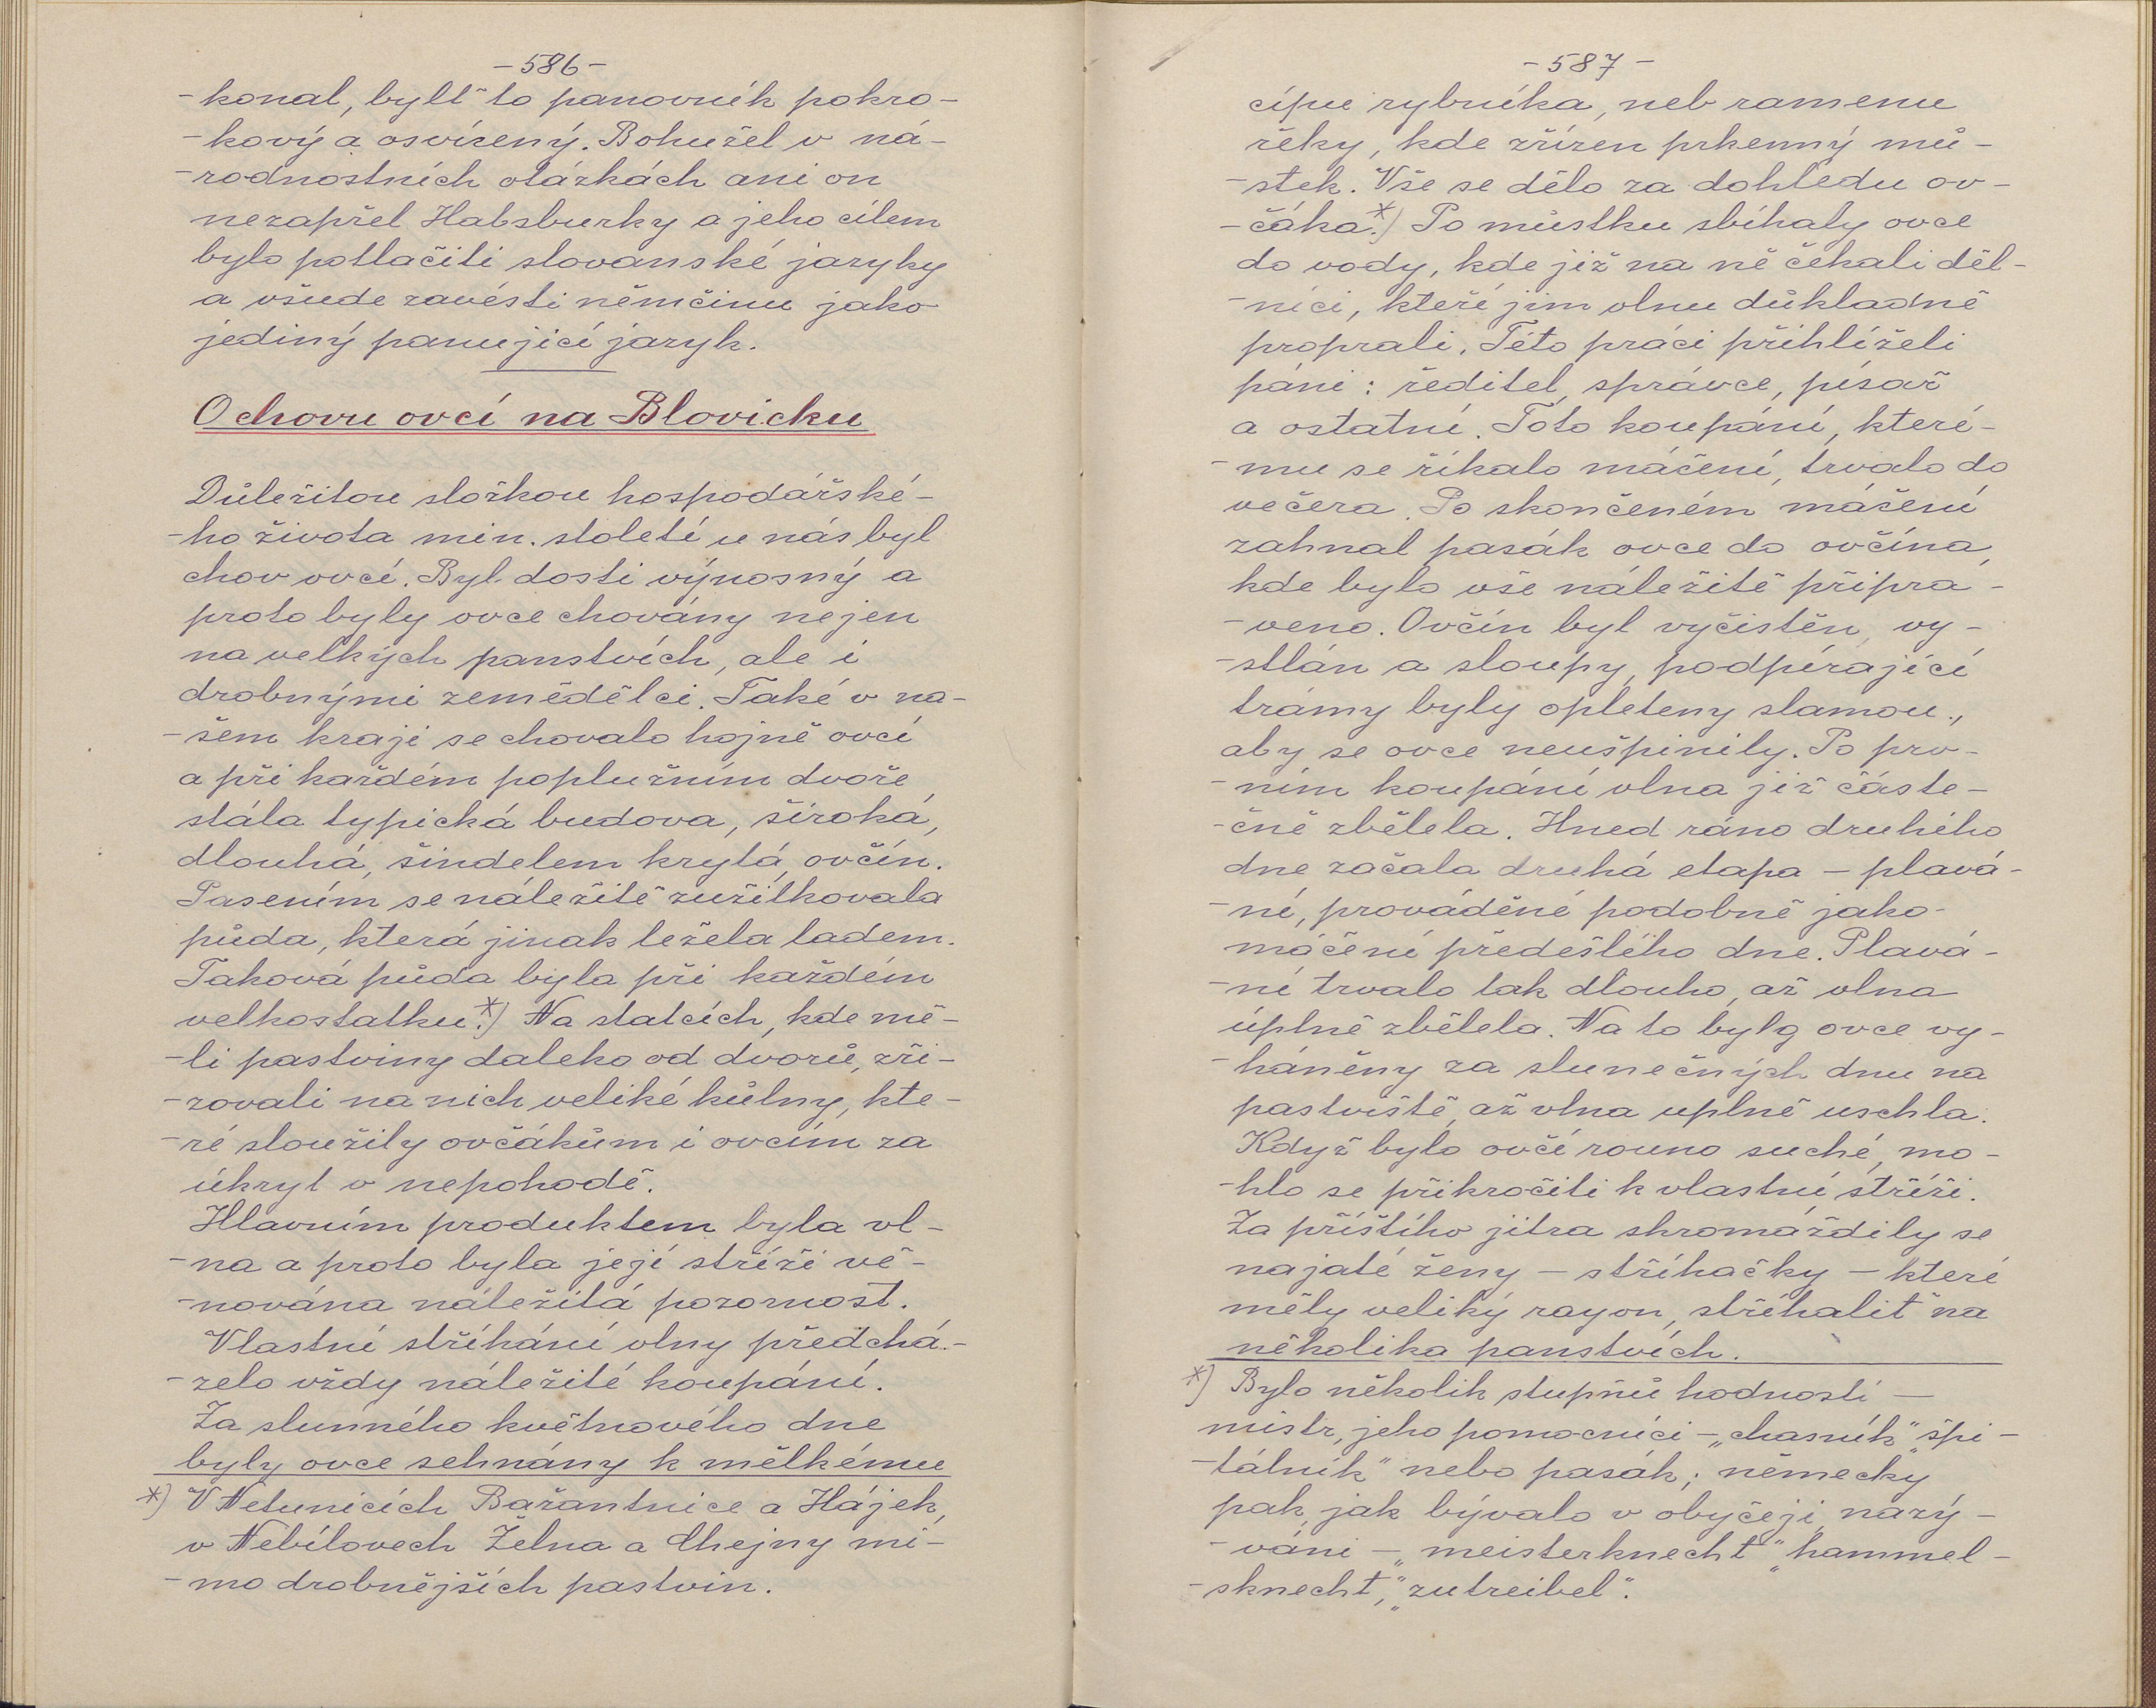 -586-
-konal, bylť to panovník pokro-
-kový a osvícený. Bohužel v ná-
-rodnostních otázkách ani on
nezapřel Habsburky a jeho cílem
bylo potlačiti slovanské jazyky
a všude zavésti němčinu jako
jediný panující jazyk.
O chovu ovcí na Blovicku
Důležitou složkou hospodářské-
-ho života min. století u nás byl
chov ovcí. Byl dosti výnosný a
proto byly ovce chovány nejen
na velkých panstvích, ale i
drobnými zemědělci. Také v na-
-šem kraji se chovalo hojně ovcí
a při každém poplužním dvoře
stála typická budova, široká,
dlouhá, šindelem krytá, ovčín.
Pasením se náležitě zužitkovala
půda, která jinak ležela ladem.
Taková půda byla při každém
velkostatku.*) Na statcích, kde mě-
-li pastviny daleko od dvorů, zři-
-zovali na nich veliké kůlny, kte-
-ré sloužily ovčákům i ovcím za
úkryt v nepohodě.
Hlavním produktem byla vl-
-na a proto byla její stříži vě-
-nována náležitá pozornost.
Vlastní stříhání vlny předchá-
-zelo vždy náležité koupání.
Za slunného květnového dne
byly ovce sehnány k mělkému
*) V Netunicích Bažantnice a Hájek,
v Nebílovech Želna a Chejny mi-
-mo drobnějších pastvin.
-587-
cípu rybníka, neb ramenu
řeky, kde zřízen prkenný mů-
-stek. Vše se dělo za dohledu ov-
-čáka.*) Po můstku sbíhaly ovce
do vody, kde již na ně čekali děl-
-níci, kteří jim vlnu důkladně
proprali. Této práci přihlíželi
páni: ředitel, správce, písař
a ostatní. Toto koupání, které-
-mu se říkalo máčení, trvalo do
večera. Po skončeném máčení
zahnal pasák ovce do ovčína,
kde bylo vše náležitě připra-
-veno. Ovčín byl vyčistěn, vy-
-stlán a sloupy, podpírající
trámy byly opleteny slamou.,
aby se ovce neušpinily. Po prv-
-ním koupání vlna již částe-
-čně zbělela. Hned ráno druhého
dne začala druhá etapa - plavá-
-ní, prováděné podobně jako
máčení předešlého dne. Plavá-
-ní trvalo tak dlouho, až vlna
úplně zbělela. Na to byly ovce vy-
-háněny za slunečných dnu na
pastviště, až vlna uplně uschla.
Když bylo ovčí rouno suché, mo-
-hlo se přikročiti k vlastní stříži.
Za příštího jitra shromáždily se
najaté ženy - střihačky - které
měly veliký rayon, stříhaliť na
několika panstvích.
*) Bylo několik stupňů hodností -
mistr, jeho pomocníci - „chasník“ „špi-
-tálník“ nebo pasák; německy
pak, jak bývalo v obyčeji, nazý-
-váni - „meisterknecht“ „hammel-
-sknecht,“ „zutreibel“.